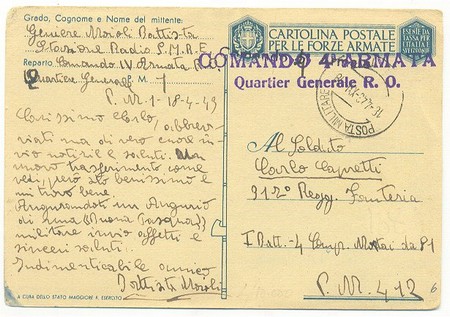 Grado, Cognome e Nome del mittente:
Geniere Maioli Battista
Stazione Radio S.M.R.E.
Reparto Comando IV Armata R
Quartier Generale P. M. 1
P.M. 1-18-4-43
Carissimo Carlo, abbrev
iati ma di vero cuore in
vio notizie e saluti. Un
nuovo trasferimento come
vedi, però sto benissimo e
mi trovo bene
un Augurio
di una (Buona Pasqua)
militare invio affetti e
sinceri saluti.
Indimenticabile amico
Battista
A CURA DELLO STATO MAGGIORE R. ESERCITO
CARTOLINA POSTALE
PER LE FORZE ARMATE
ESENTE DA
TASSA PER
L'ITALIA E
COMANDO 4ª ARMATA
Quartier Generale R. O.
POSTA MILITARE
Al Soldato
Carlo Capretti
Regg. Fanteria
I Batt.-4 Comp. Mortai da 81
P.M. 412